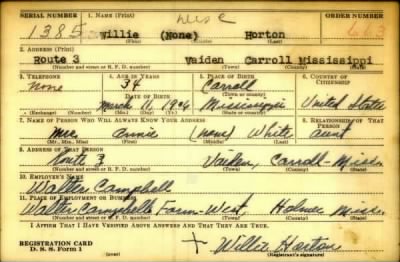 SERIAL NUMBER 1. NAME (Print) ORDER NUMBER
1385 Willie (None) Horton
(First) (Middle) (Last)
2. ADDRESS (Print)
Route 3 Vaiden Carroll Mississippi
(Number and street or R. F. D. number) (Town) (County) (State)
3. TELEPHONE 4. AGE IN YEARS 5. PLACE OF BIRTH 6. COUNTRY OF CITIZENSHIP
None 34 Carroll
DATE OF BIRTH (Town or county)
March 16, 1906 Mississippi United States
(Exchange) (Number) (Mo.) (Day) (Yr.) (State or country)
7. NAME OF PERSON WHO WILL ALWAYS KNOW YOUR ADDRESS 8. RELATIONSHIP OF THAT PERSON
Mrs. Annie (none) White Aunt
(Mr., Mrs., Miss) (First) (Middle) (Last)
9. ADDRESS OF THAT PERSON
Route 3 Vaiden, Carroll - Miss.
(Number and street or R. F. D. number) (Town) (County) (State)
10. EMPLOYER'S NAME
Walter Campbell
11. PLACE OF EMPLOYMENT OR BUSINESS
Walter Campbells Farm - West Holmes Miss.
(Number and street or R. F. D. number) (Town) (County) (State)
I AFFIRM THAT I HAVE VERIFIED ABOVE ANSWERS AND THAT THEY ARE TRUE.
REGISTRATION CARD
D. S. S. Form 1
(over)
+ Willie Horton
(Registrant's signature)